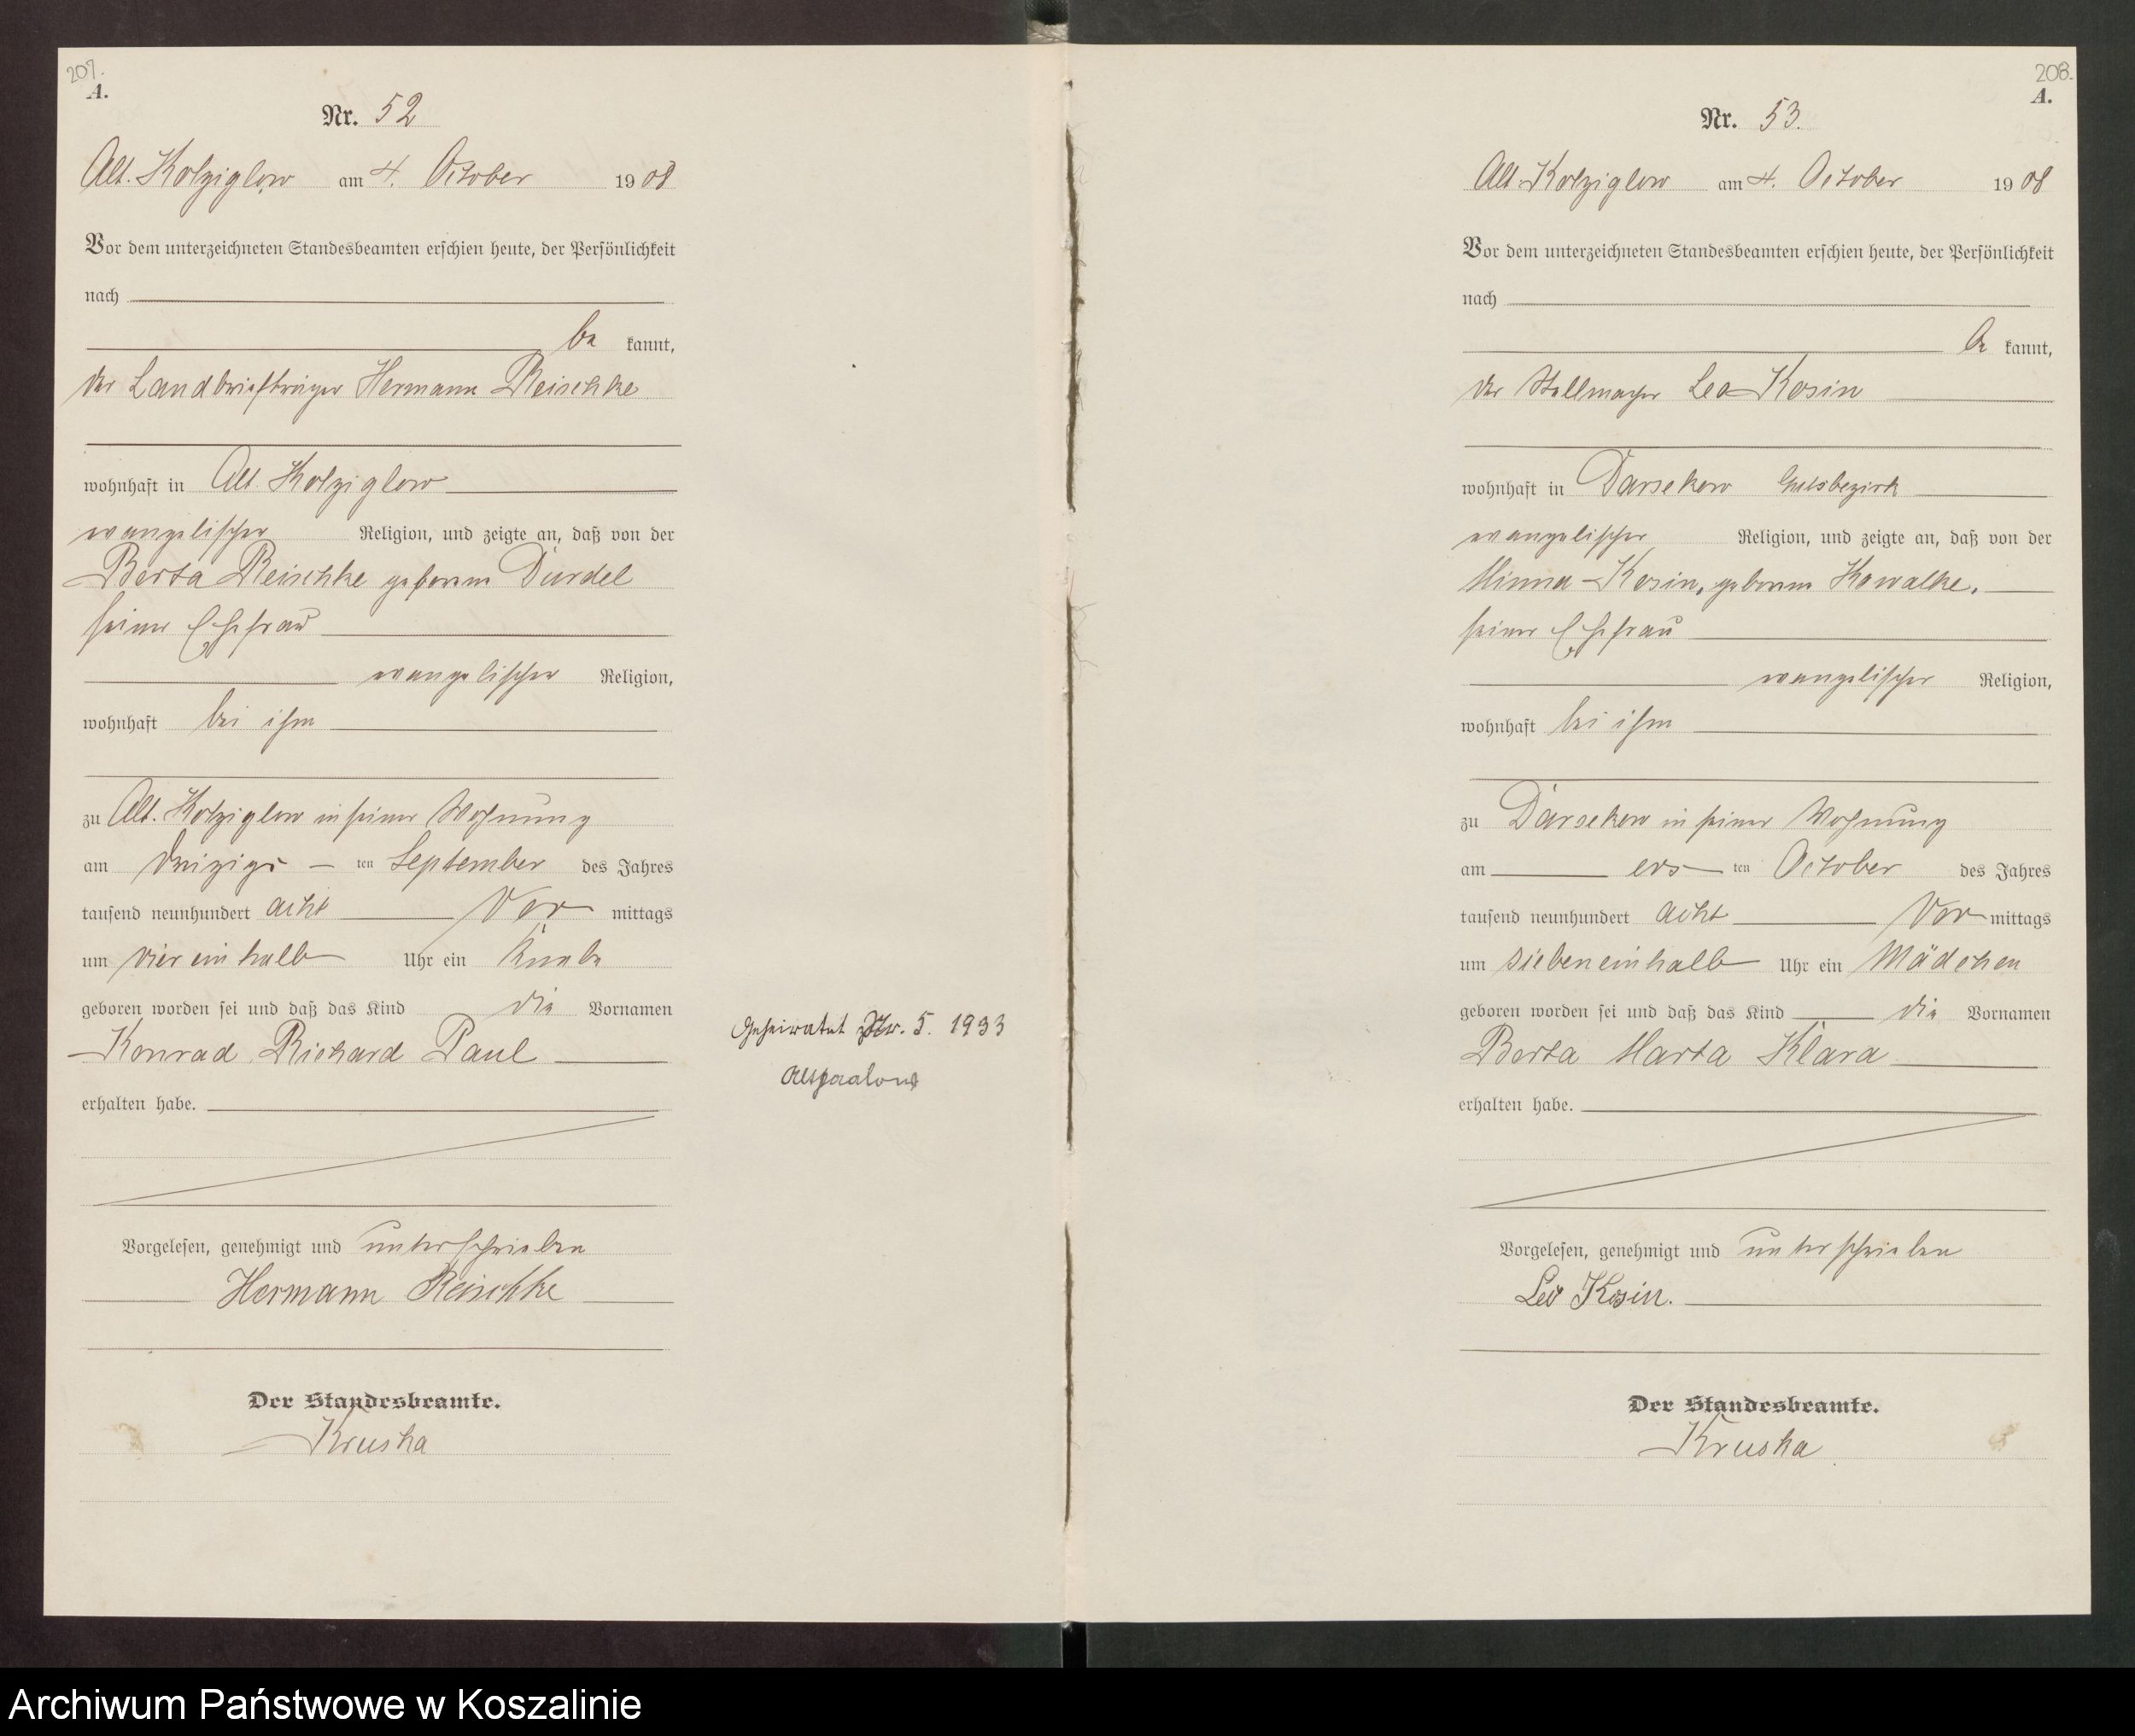 207.
A.
Nr. 52
Alt. Kolziglow am 4. October 1908
Vor dem unterzeichneten Standesbeamten erschien heute, der Persönlichkeit
nach
be kannt,
der Landbriefträger Hermann Reischke
wohnhaft in Alt. Kolziglow
evangelischer Religion, und zeigte an, daß von der
Berta Reischke geborene Durdel
seiner Ehefrau
evangelischer Religion,
wohnhaft bei ihm
zu Alt. Kolziglow in seiner Wohnung
am dreizigs ten September des Jahres
tausend neunhundert acht Vor mittags
um vier ein halb Uhr ein Knabe
geboren worden sei und daß das Kind die Vornamen
Konrad Richard Paul
erhalten habe.
Vorgelesen, genehmigt und unterschrieben
Hermann Reischke
Der Standesbeamte.
Kruska
Geheiratet Nr. 5. 1933
208.
A.
Nr. 53.
Alt. Kolziglow am 4. October 1908
Vor dem unterzeichneten Standesbeamten erschien heute, der Persönlichkeit
nach
be kannt,
der Stellmacher Leo Kosin
wohnhaft in Darsekow Gutsbezirk
evangelischer Religion, und zeigte an, daß von der
Minna Kosin, geborene Kowalke,
seiner Ehefrau
evangelischer Religion,
wohnhaft bei ihm
zu Darsekow in seiner Wohnung
am ers ten October des Jahres
tausend neunhundert acht Vor mittags
um sieben einhalb Uhr ein Mädchen
geboren worden sei und daß das Kind die Vornamen
Berta Marta Klara
erhalten habe.
Vorgelesen, genehmigt und unterschrieben
Leo Kosin.
Der Standesbeamte.
Kruska
Archiwum Państwowe w Koszalinie